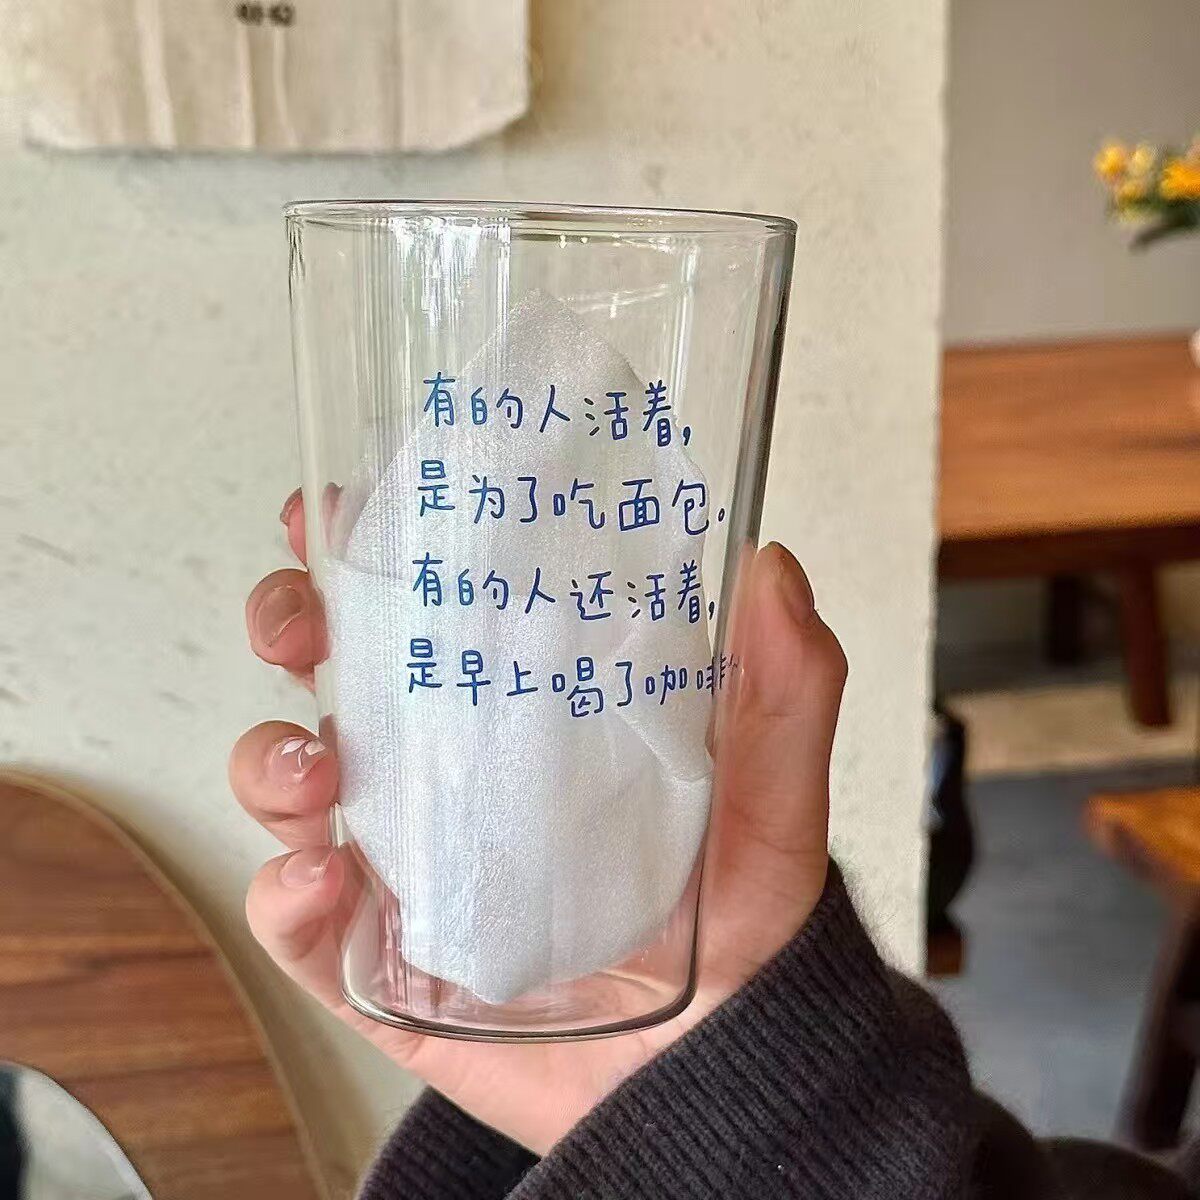 有的人活着，
是为了吃面包。
有的人还活着，
是早上喝了咖啡~